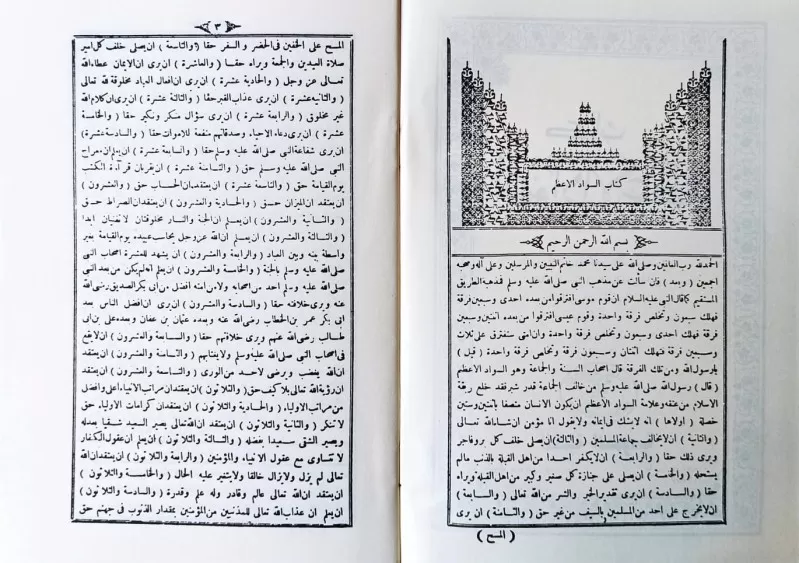 كتاب السواد الاعظم
بسم الله الرحمن الرحيم
الحمدلله رب العالمين وصلى الله على سيدنا محمد خاتم النبيين والمرسلين وعلى آله وصحبه
اجمعين ( وبعد ) فان سألت عن مذهب النبي صلى الله عليه وسلم فمذهبه الطريق
المستقيم كما قال النبي عليه السلام ان قوم موسى افترقوا من بعده احدى وسبعين فرقة
فهلك سبعون وتخلص فرقة واحدة وقوم عيسى افترقوا من بعده اثنتين وسبعين
فرقة فهلك احدى وسبعون وتخلص فرقة واحدة وان امتى ستفترق على ثلاث
وسبعين فرقة فهلك اثنتان وسبعون فرقة وتخلص فرقة واحدة ( قيل )
يا رسول الله ومن تلك الفرقة قال اصحاب السنة والجماعة وهو السواد الاعظم
( قال ) رسول الله صلى الله عليه وسلم من خالف الجماعة قدر شبر فقد خلع ربقة
الاسلام من عنقه وعلامة السواد الأعظم ان يكون الانسان متصفا باثنتين وستين
خصلة ( اولاها ) انه لا يشك فى ايمانه ولا يقول انا مؤمن ان شاء الله تعالى
( والثانية ) ان لا يخالف جماعة المسلمين ( والثالثة ) ان يصلى خلف كل بر وفاجر
ويرى ذلك حقا ( والرابعة ) ان لا يكفر احدا من اهل القبلة بالذنب مالم
يستحله ( والخامسة ) ان يصلى على جنازة كل صغير وكبير من اهل القبلة ويراه
حقا ( والسادسة ) ان يرى تقدير الخير والشر من الله تعالى ( والسابعة )
ان لا يخرج على احد من المسلمين بالسيف من غير حق ( والثامنة ) ان يرى
( المسح )
٣
المسح على الخفين فى الحضر والسفر حقا ( والتاسعة ) ان يصلى خلف كل امير
صلاة العيدين والجمعة ويراه حقا ( والعاشرة ) ان يرى ان الايمان عطاء الله
تعالى عز وجل ( والحادية عشرة ) ان يرى ان افعال العباد مخلوقة لله تعالى
( والثانية عشرة ) ان يرى عذاب القبر حقا ( والثالثة عشرة ) ان يرى ان كلام الله
غير مخلوق ( والرابعة عشرة ) ان يرى سؤال منكر ونكير حقا ( والخامسة
عشرة ) ان يرى دعاء الاحياء وصدقاتهم منفعة للاموات حقا ( والسادسة عشرة )
ان يرى شفاعة النبى صلى الله عليه وسلم حقا ( والسابعة عشرة ) ان يعلم ان معراج
النبى صلى الله عليه وسلم حق ( والثامنة عشرة ) ان يقر بان قرآءة الكتب
يوم القيامة حق ( والتاسعة عشرة ) ان يعتقد ان الحساب حق ( والعشرون )
ان يعتقد ان الميزان حق ( والحادية والعشرون ) ان يعتقد ان الصراط حق
( والثانية والعشرون ) ان يعلم ان الجنة والنار مخلوقتان لا تفنيان ابدا
( والثالثة والعشرون ) ان يعلم ان الله عز وجل يحاسب عبيده يوم القيامة بغير
واسطة بينه وبين العباد ( والرابعة والعشرون ) ان يشهد للعشرة اصحاب النبى
صلى الله عليه وسلم بالجنة ( والخامسة والعشرون ) ان يعلم انه لم يكن من بعد النبى
صلى الله عليه وسلم احد من اصحابه ولا من امته افضل من أبى بكر الصديق رضى الله
عنه ويرى خلافته حقا ( والسادسة والعشرون ) ان يرى ان افضل الناس بعد
ابى بكر عمر بن الخطاب رضى الله عنه وبعده عثمان بن عفان وبعده على بن ابى
طالب رضى الله عنهم ويرى خلافتهم حقا ( والسابعة والعشرون ) ان لا يقع
فى اصحاب النبى صلى الله عليه وسلم ولا يغتابهم ( والثامنة والعشرون ) ان يعتقد
ان الله يغضب ويرضى لا كاحد من الورى ( والتاسعة والعشرون ) ان يعتقد
ان رؤية الله تعالى بلا كيف حق ( والثلاثون ) ان يعتقد ان مراتب الانبياء اعلى وافضل
من مراتب الاولياء ( والحادية والثلاثون ) ان يعتقد ان كرامات الاولياء حق
لا تنكر ( والثانية والثلاثون ) ان يعتقد ان الله تعالى يصير السعيد شقيا بعدله
ويصير الشقى سعيدا بفضله ( والثالثة والثلاثون ) ان يعلم ان عقول الكفار
لا تتساوى مع عقول الانبياء والمؤمنين ( والرابعة والثلاثون ) ان يعتقد ان الله
تعالى لم يزل ولا يزال خالقا ولا يتغير عليه الحال ( والخامسة والثلاثون )
ان يعتقد ان الله تعالى عالم وقادر وله علم وقدرة ( والسادسة والثلاثون )
ان يعلم ان عذاب الله تعالى للمذنبين من المؤمنين بمقدار الذنوب فى جهنم حق